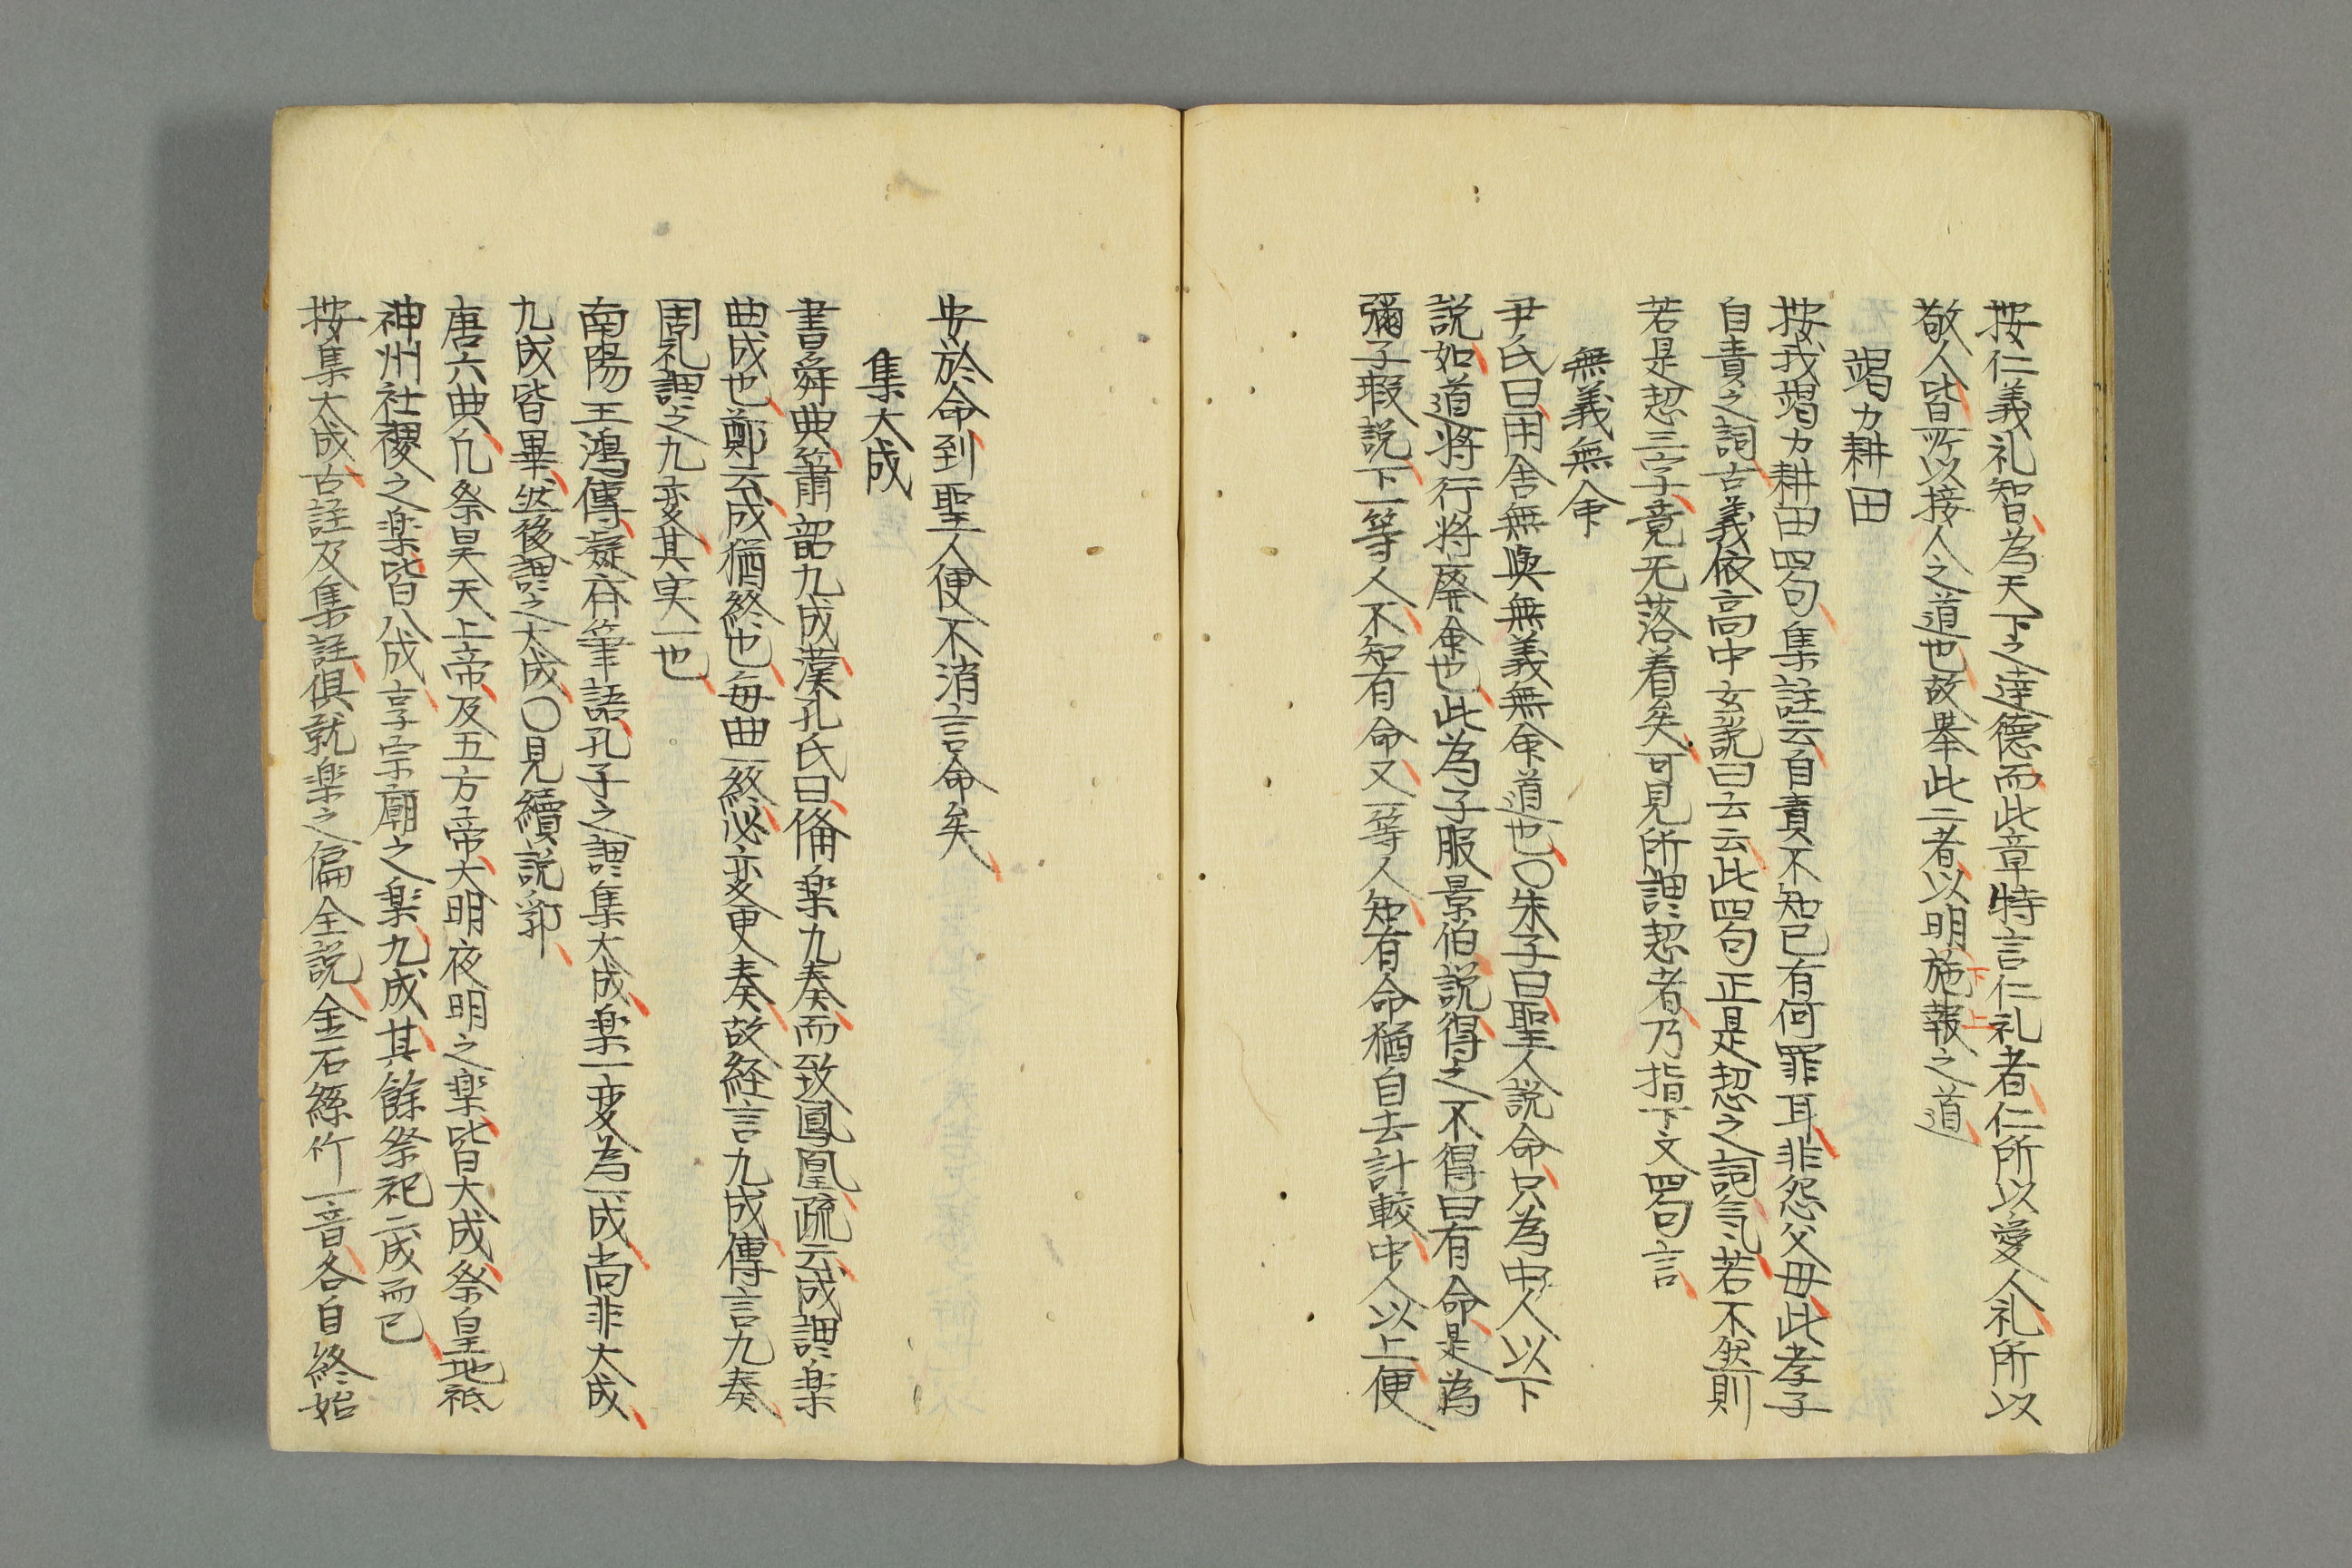 按仁義礼智為天下之達德而此章特言仁礼者仁所以愛人礼所以
敬人皆所以接人之道也故挙此二者以明施報之道
竭力耕田
按我竭力耕田四句集註云自責不知已有何罪耳非怨父母此孝子
自責之詞古義依高中玄説曰云云此四句正是恝之詞気若不然則
若是恝三字竟无落着矣可見所謂恝者乃指下文四句言
無義無命
尹氏曰用舎無與無義無命道也〇朱子曰聖人説命只為中人以下
説如道将行将廃命也此為子服景伯説得之不得曰有命是為
彌子瑕説下一等人不知有命又一等人知有命猶自去計較中人以上便
安於命到聖人便不消言命矣
集大成
書舜典簫韶九成漢孔氏曰俻楽九奏而致鳳凰疏云成謂楽
曲成也鄭云成猶終也毎曲一終必変更奏故経言九成傳言九奏
周礼謂之九変其実一也
南陽王鴻傳凝斎筆語孔子之謂集大成楽一変為一成尚非大成
九成皆畢然後謂之大成〇見續説郛
唐六典凢祭昊天上帝及五方帝大明夜明之楽皆大成祭皇地祇
神州社稷之楽皆八成享宗廟之楽九成其餘祭祀三成而已
按集大成古註及集註俱就楽之偏全説金石絲竹一音各自終始